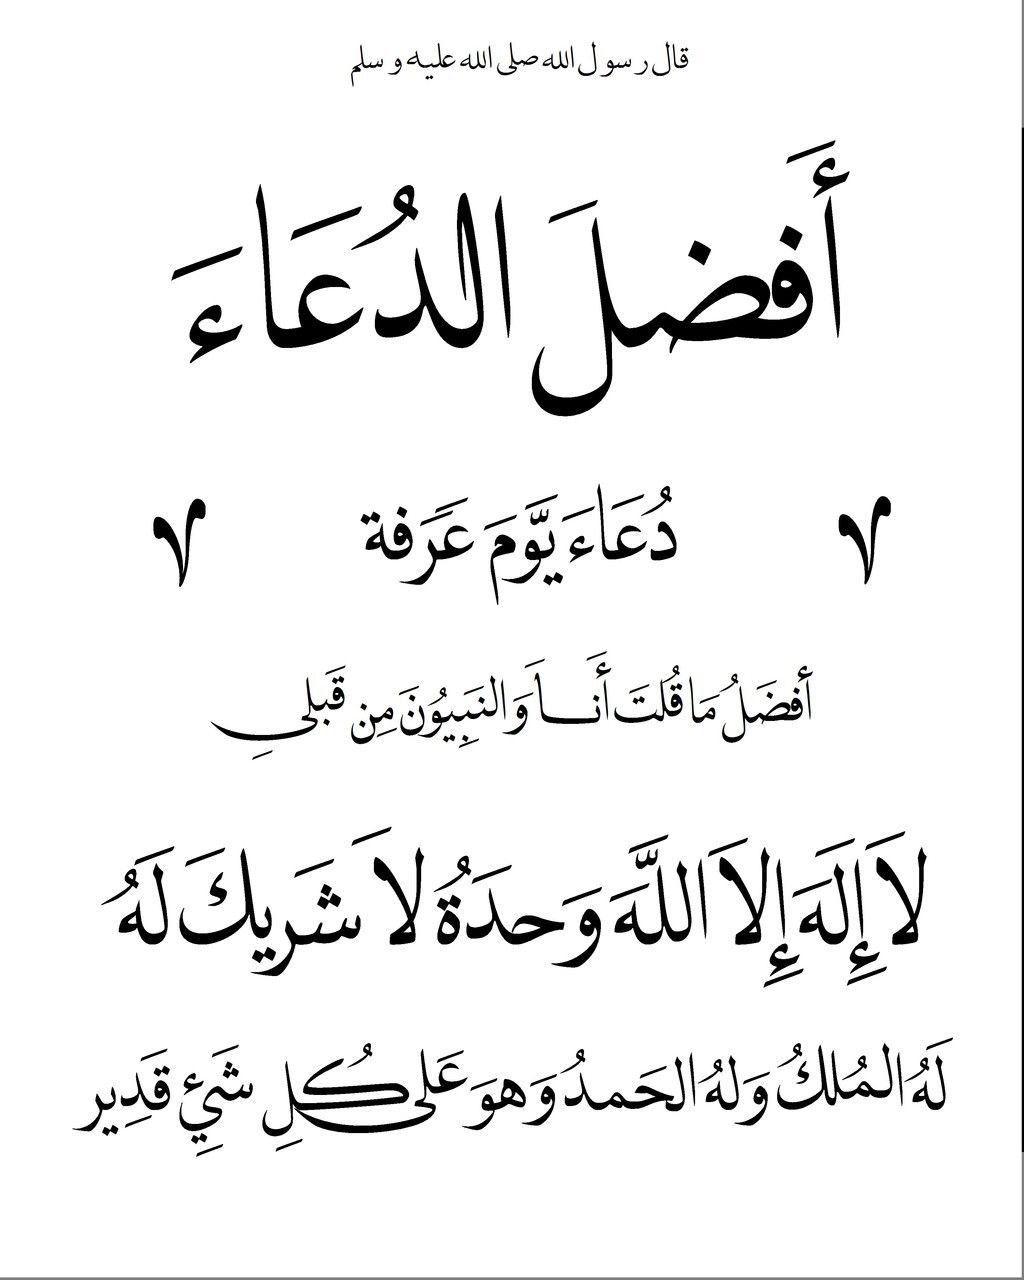 قال رسول الله صلى الله عليه و سلم
أَفضلَ الدُعَاءَ
دُعَاءَ يَّوْمَ عَرَفة
أفضَلُ مَا قُلتَ أَنــاَ وَالنَبِيُونَ مِن قَبلي
لاَ إِلَهَ إِلاَ اللَّهَ وَحدَةُ لاَ شَرِيكَ لَهُ
لَهُ المُلكُ وَلَهُ الحَمدُ وَهوَ عَلى كُلِ شَيِْء قَدِير